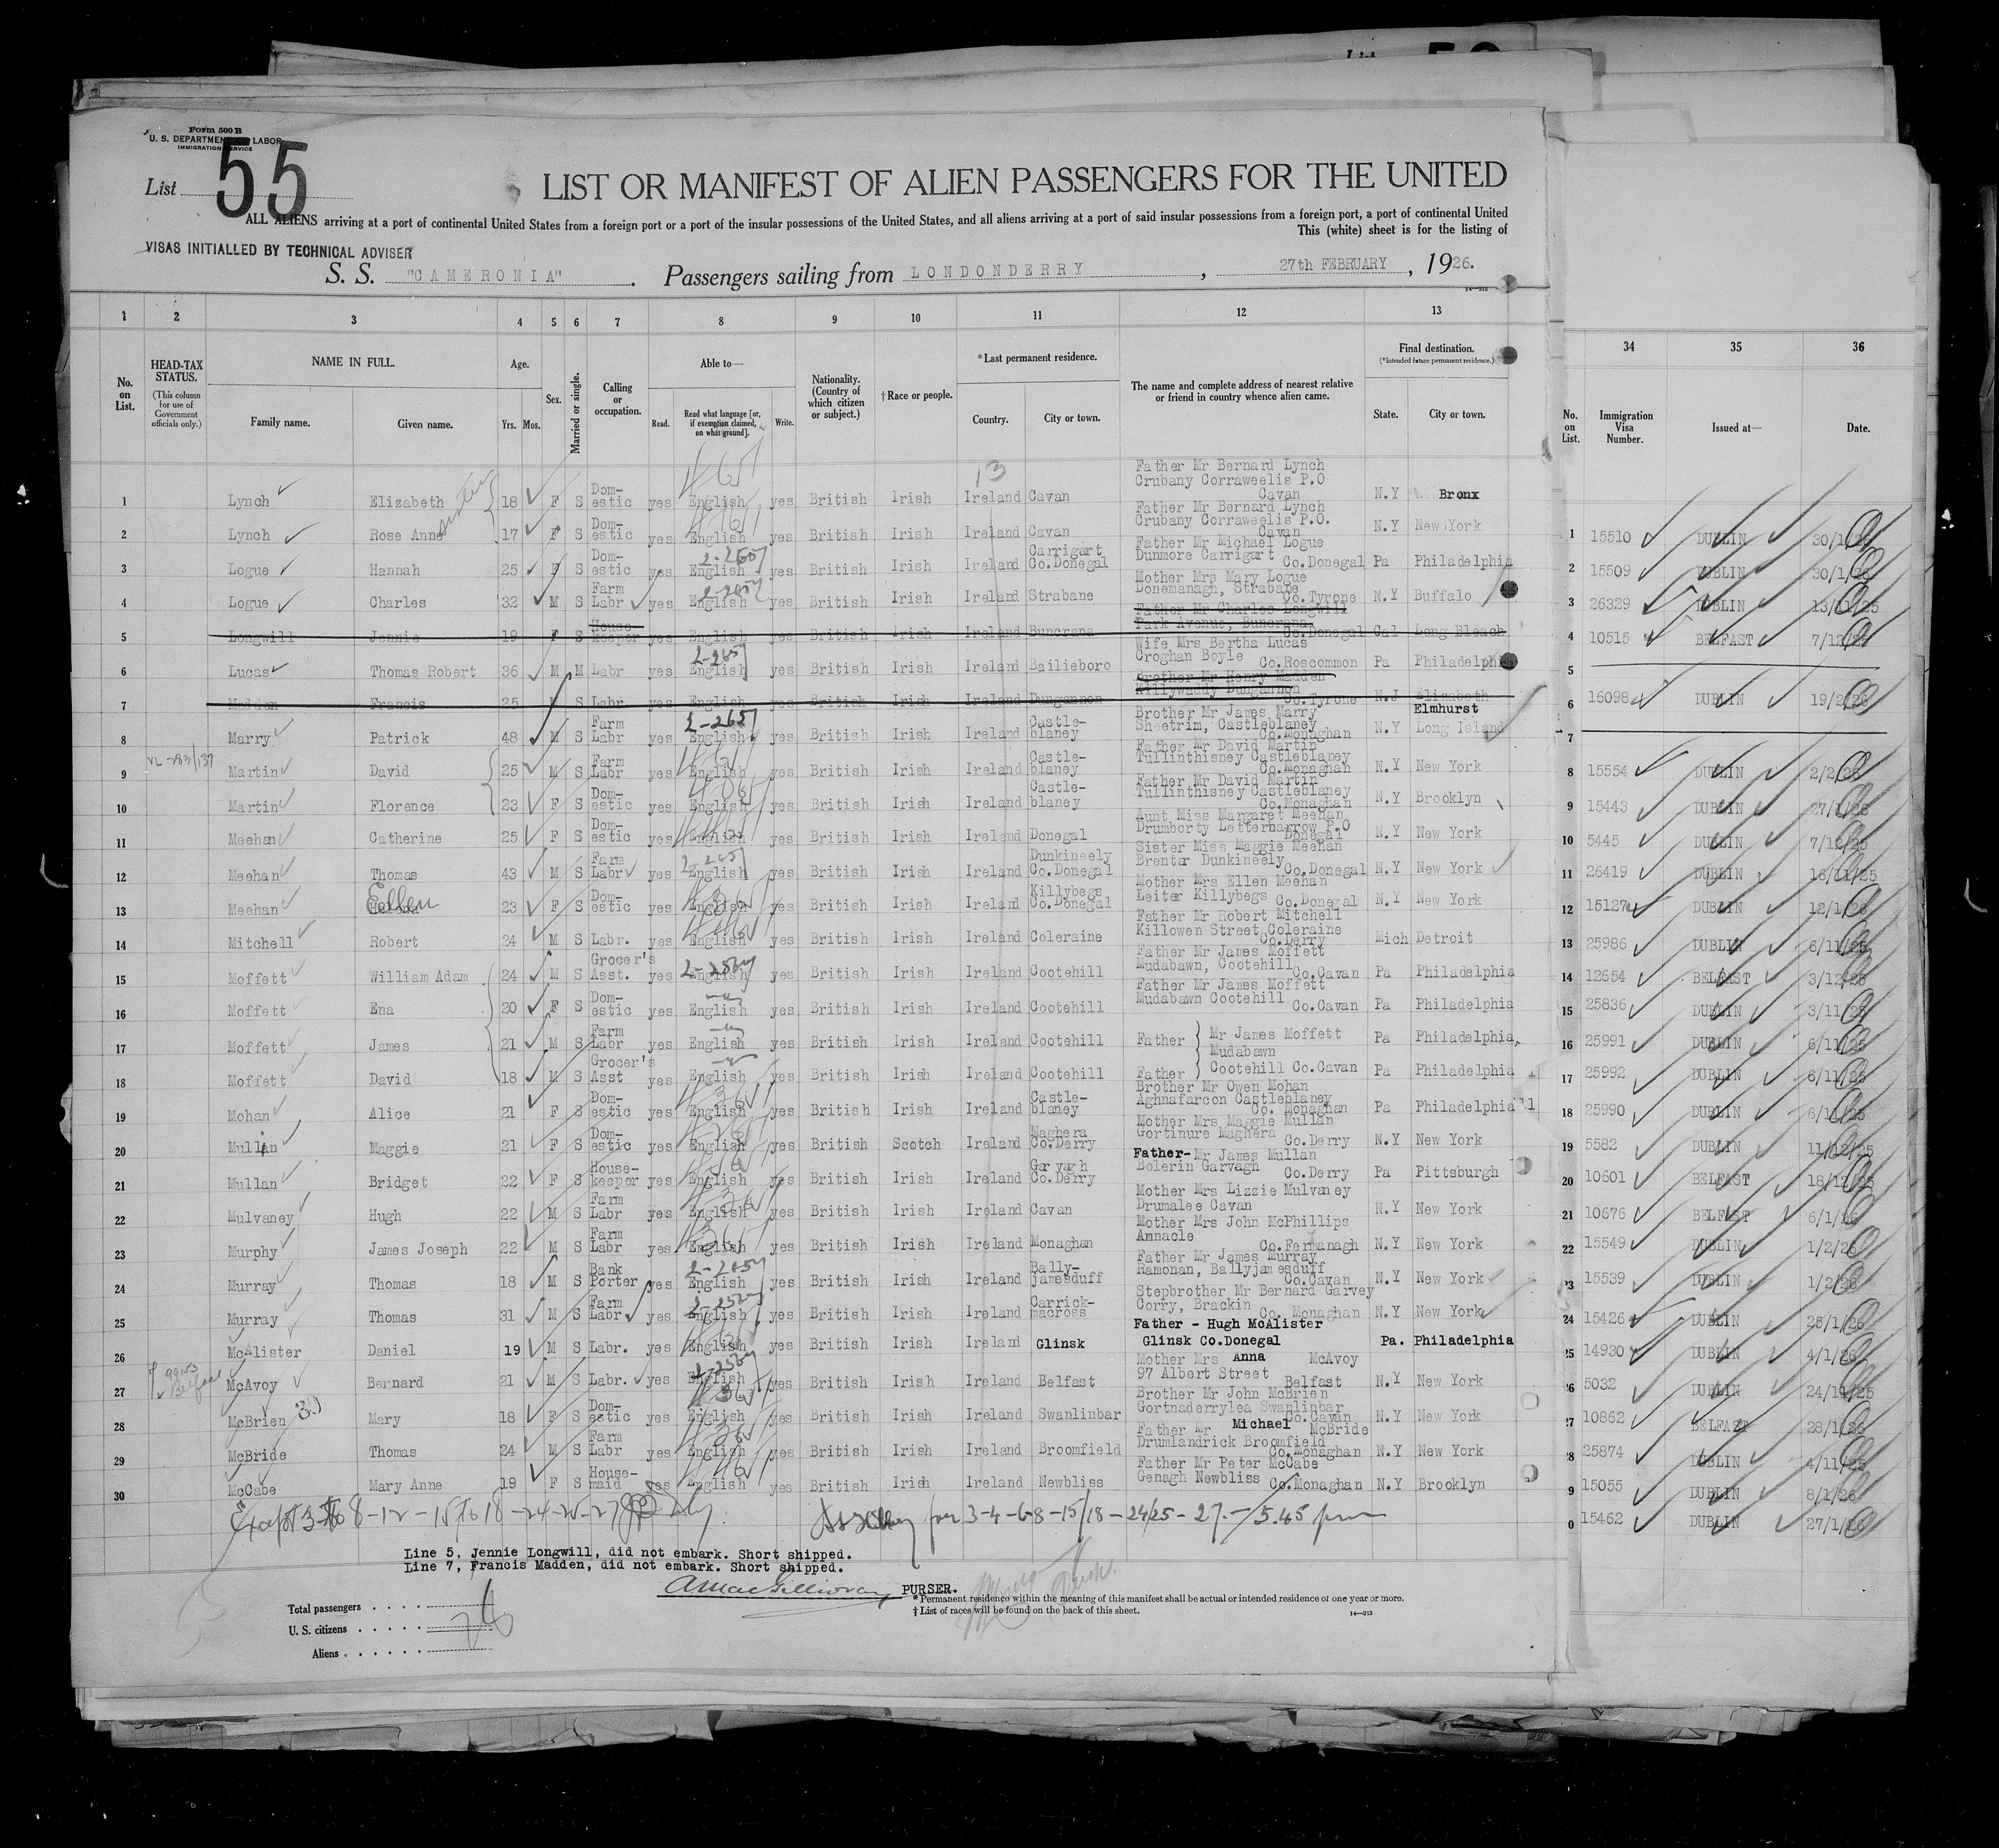 Form 500 B
U. S. DEPARTMENT LABOR
IMMIGRATION SERVICE
List 55
LIST OR MANIFEST OF ALIEN PASSENGERS FOR THE UNITED
ALL ALIENS arriving at a port of continental United States from a foreign port or a port of the insular possessions of the United States, and all aliens arriving at a port of said insular possessions from a foreign port, a port of continental United
This (white) sheet is for the listing of
VISAS INITIALLED BY TECHNICAL ADVISER
S. S. "CAMERONIA". Passengers sailing from LONDONDERRY, 27th FEBRUARY, 1926.
1 2 3 4 5 6 7 8 9 10 11 12 13 34 35 36
No. on List. HEAD-TAX STATUS. (This column for use of Government officials only.) NAME IN FULL. Family name. Given name. Age. Yrs. Mos. Sex. Married or single. Calling or occupation. Able to— Read. Read what language [or, if exemption claimed, on what ground]. Write. Nationality. (Country of which citizen or subject.) †Race or people. *Last permanent residence. Country. City or town. The name and complete address of nearest relative or friend in country whence alien came. Final destination. (*Intended future permanent residence.) State. City or town. No. on List. Immigration Visa Number. Issued at— Date.
1 Lynch Elizabeth 18 F S Domestic yes English yes British Irish Ireland Cavan Father Mr Bernard Lynch Crubany Corraweelis P.O Cavan N.Y Bronx
2 Lynch Rose Anne 17 F S Domestic yes English yes British Irish Ireland Cavan Father Mr Bernard Lynch Crubany Corraweelis P.O. Cavan N.Y New York
3 Logue Hannah 25 F S Domestic yes English yes British Irish Ireland Carrigart Co.Donegal Father Mr Michael Logue Dunmore Carrigart Co.Donegal Pa Philadelphia
4 Logue Charles 32 M S Farm Labr yes English yes British Irish Ireland Strabane Mother Mrs Mary Logue Donemanagh, Strabane Co.Tyrone N.Y Buffalo
5 Longwill Jennie 19 F S Housekeeper yes English yes British Irish Ireland Buncrana Father Mr Charles Longwill Park Avenue, Buncrana Co.Donegal Cal Long Bleach
6 Lucas Thomas Robert 36 M M Labr yes English yes British Irish Ireland Bailieboro Wife Mrs Bertha Lucas Croghan Boyle Co.Roscommon Pa Philadelphia
7 Madden Francis 25 M S Labr yes English yes British Irish Ireland Dungannon Brother Mr Henry Madden Killywaddy Dungannon Co.Tyrone N.J Elizabeth
8 Marry Patrick 48 M S Farm Labr yes English yes British Irish Ireland Castleblaney Brother Mr James Marry Sheetrim, Castleblaney Co.Monaghan N.Y Elmhurst Long Island
9 Martin David 25 M S Farm Labr yes English yes British Irish Ireland Castleblaney Father Mr David Martin Tullinthisney Castleblaney Co.Monaghan N.Y New York
10 Martin Florence 23 F S Domestic yes English yes British Irish Ireland Castleblaney Father Mr David Martin Tullinthisney Castleblaney Co.Monaghan N.Y Brooklyn
11 Meehan Catherine 25 F S Domestic yes English yes British Irish Ireland Donegal Aunt Miss Margaret Meehan Drumborty Letterbarrow P.O Donegal N.Y New York
12 Meehan Thomas 43 M S Farm Labr yes English yes British Irish Ireland Dunkineely Co.Donegal Sister Miss Maggie Meehan Brenter Dunkineely Co.Donegal N.Y New York
13 Meehan Ellen 23 F S Domestic yes English yes British Irish Ireland Killybegs Co.Donegal Mother Mrs Ellen Meehan Leiter Killybegs Co.Donegal N.Y New York
14 Mitchell Robert 24 M S Labr. yes English yes British Irish Ireland Coleraine Father Mr Robert Mitchell Killowen Street Coleraine Co.Derry Mich Detroit
15 Moffett William Adam 24 M S Grocer's Asst. yes English yes British Irish Ireland Cootehill Father Mr James Moffett Mudabawn, Cootehill Co.Cavan Pa Philadelphia
16 Moffett Ena 20 F S Domestic yes English yes British Irish Ireland Cootehill Father Mr James Moffett Mudabawn Cootehill Co.Cavan Pa Philadelphia
17 Moffett James 21 M S Farm Labr yes English yes British Irish Ireland Cootehill Father Mr James Moffett Mudabawn Pa Philadelphia
18 Moffett David 18 M S Grocer's Asst yes English yes British Irish Ireland Cootehill Father Cootehill Co.Cavan Pa Philadelphia
19 Mohan Alice 21 F S Domestic yes English yes British Irish Ireland Castleblaney Brother Mr Owen Mohan Aghnafarcon Castleblaney Co. Monaghan Pa Philadelphia
20 Mullan Maggie 21 F S Domestic yes English yes British Scotch Ireland Maghera Co.Derry Mother Mrs Maggie Mullan Gortinure Maghera Co.Derry N.Y New York
21 Mullan Bridget 22 F S Housekeeper yes English yes British Irish Ireland Garvagh Co.Derry Father- Mr James Mullan Bolerin Garvagh Co.Derry Pa Pittsburgh
22 Mulvaney Hugh 22 M S Farm Labr yes English yes British Irish Ireland Cavan Mother Mrs Lizzie Mulvaney Drumalee Cavan N.Y New York
23 Murphy James Joseph 22 M S Farm Labr yes English yes British Irish Ireland Monaghan Mother Mrs John McPhillips Annacle Co.Fermanagh N.Y New York
24 Murray Thomas 18 M S Bank Porter yes English yes British Irish Ireland Ballyjamesduff Father Mr James Murray Ramonan, Ballyjamesduff Co.Cavan N.Y New York
25 Murray Thomas 31 M S Farm Labr yes English yes British Irish Ireland Carrickmacross Stepbrother Mr Bernard Garvey Corry, Brackin Co. Monaghan N.Y New York
26 McAlister Daniel 19 M S Labr. yes English yes British Irish Ireland Glinsk Father - Hugh McAlister Glinsk Co.Donegal Pa. Philadelphia
27 McAvoy Bernard 21 M S Labr. yes English yes British Irish Ireland Belfast Mother Mrs Anna McAvoy 97 Albert Street Belfast N.Y New York
28 McBrien Mary 18 F S Domestic yes English yes British Irish Ireland Swanlinbar Brother Mr John McBrien Gortnaderrylea Swanlinbar Co.Cavan N.Y New York
29 McBride Thomas 24 M S Farm Labr yes English yes British Irish Ireland Broomfield Father Mr Michael McBride Drumlandrick Broomfield Co.Monaghan N.Y New York
30 McCabe Mary Anne 19 F S Housemaid yes English yes British Irish Ireland Newbliss Father Mr Peter McCabe Genagh Newbliss Co.Monaghan N.Y Brooklyn
1 15510 DUBLIN 30/1/26
2 15509 DUBLIN 30/1/26
3 26329 DUBLIN 13/11/25
4 10515 BELFAST 7/12/25
5
6 16098 DUBLIN 19/2/26
7
8 15554 DUBLIN 2/2/26
9 15443 DUBLIN 27/1/26
10 5445 DUBLIN 7/12/25
11 26419 DUBLIN 16/11/25
12 15127 DUBLIN 12/1/26
13 25986 DUBLIN 6/11/25
14 12654 BELFAST 3/12/25
15 25836 DUBLIN 3/11/25
16 25991 DUBLIN 6/11/25
17 25992 DUBLIN 6/11/25
18 25990 DUBLIN 6/11/25
19 5582 DUBLIN 11/12/25
20 10601 BELFAST 18/12/25
21 10676 BELFAST 6/1/26
22 15549 DUBLIN 1/2/26
23 15539 DUBLIN 1/2/26
24 15426 DUBLIN 28/1/26
25 14930 DUBLIN 4/1/26
26 5032 DUBLIN 24/11/25
27 10862 BELFAST 28/1/26
28 25874 DUBLIN 4/11/25
9 15055 DUBLIN 8/1/26
0 15462 DUBLIN 27/1/26
Except 3 to 8-12-15 to 18-24-25-27
for 3-4-6-8-15/18-24/25-27. 5.45 pm
Line 5, Jennie Longwill, did not embark. Short shipped.
Line 7, Francis Madden, did not embark. Short shipped.
PURSER.
* Permanent residence within the meaning of this manifest shall be actual or intended residence of one year or more.
† List of races will be found on the back of this sheet.
14—213
Total passengers
U. S. citizens
Aliens